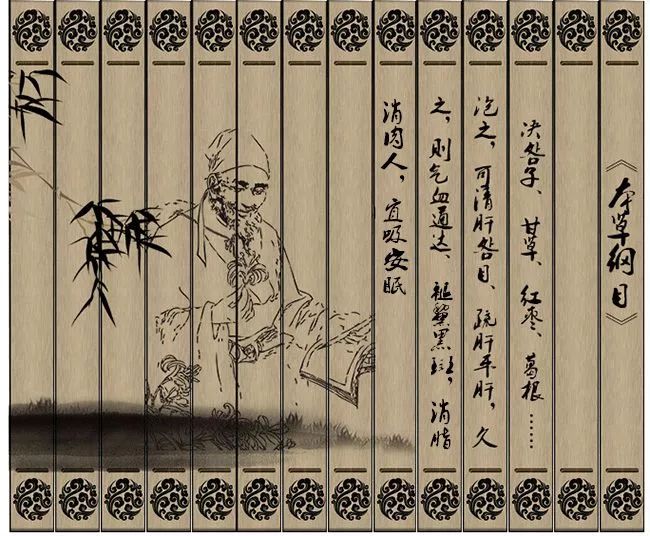 《本草纲目》
决明子、甘草、红枣、葛根……
泡之，可清肝明目、疏肝平肝，久
之，则气血通达、褪黧黑斑，消脂
消肉人，宜吸安眠